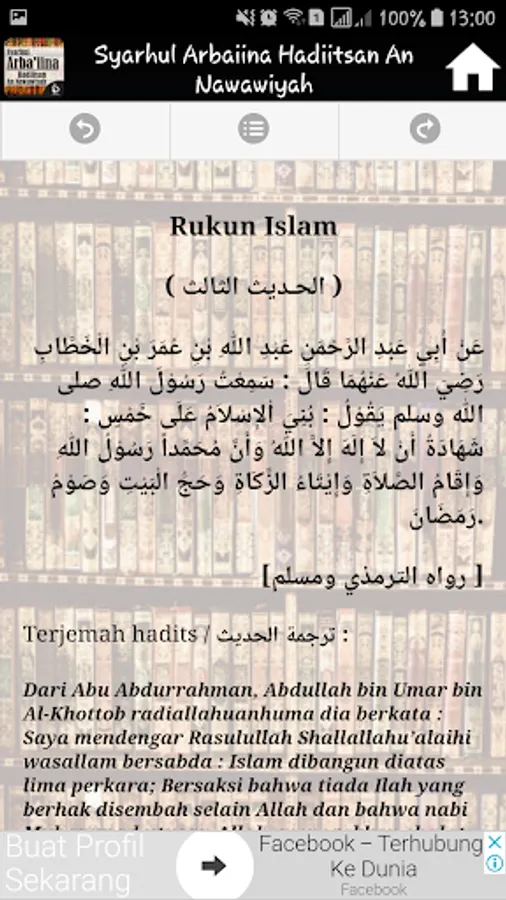 100% 13:00
Arba'iina
Syarhul Arbaiina Hadiitsan An
Nawawiyah
Rukun Islam
( الحـديث الثالث )
عَنْ أَبِي عَبْدِ الرَّحْمَنِ عَبْدِ اللهِ بْنِ عُمَرَ بْنِ الْخَطَّابِ
رَضِيَ اللهُ عَنْهُمَا قَالَ : سَمِعْتُ رَسُوْلَ اللهِ صلى
الله وسلم يَقُوْلُ : بُنِيَ اْلإِسْلاَمُ عَلَى خَمْسٍ :
شَهَادَةُ أَنْ لاَ إِلَهَ إِلاَّ اللهُ وَأَنَّ مُحَمَّداً رَسُوْلُ اللهِ
وَإِقَامُ الصَّلاَةِ وَإِيْتَاءُ الزَّكَاةِ وَحَجُّ الْبَيْتِ وَصَوْمُ
رَمَضَانَ.
[ رواه الترمذي ومسلم ]
Terjemah hadits / ترجمة الحديث :
Dari Abu Abdurrahman, Abdullah bin Umar bin
Al-Khottob radiallahuanhuma dia berkata :
Saya mendengar Rasulullah Shallallahu'alaihi
wasallam bersabda : Islam dibangun diatas
lima perkara; Bersaksi bahwa tiada Ilah yang
berhak disembah selain Allah dan bahwa nabi
Buat Profil
Sekarang
Facebook – Terhubung
Ke Dunia
Facebook